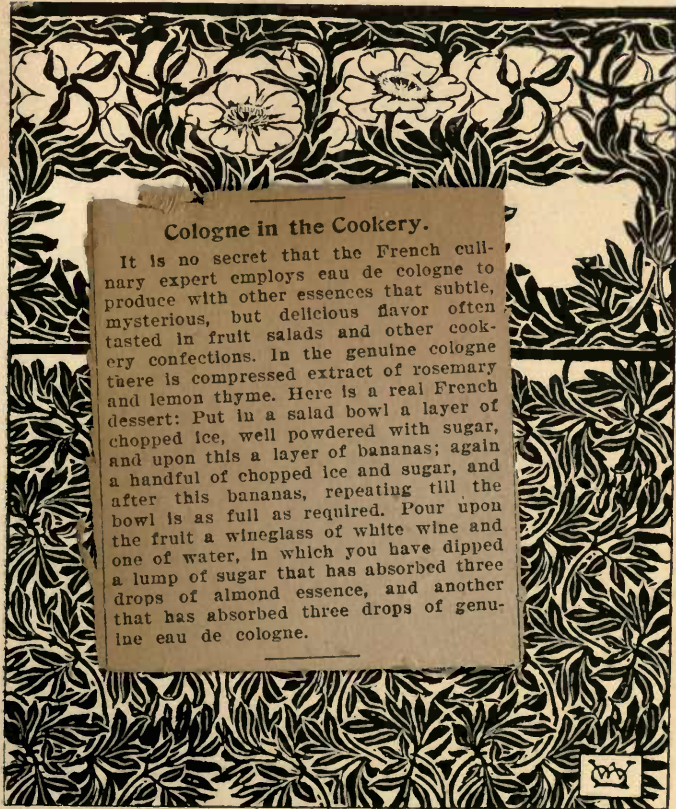 Cologne in the Cookery.
It is no secret that the French culi-
nary expert employs eau de cologne to
produce with other essences that subtle,
mysterious, but delicious flavor often
tasted in fruit salads and other cook-
ery confections. In the genuine cologne
there is compressed extract of rosemary
and lemon thyme. Here is a real French
dessert: Put in a salad bowl a layer of
chopped ice, well powdered with sugar,
and upon this a layer of bananas; again
a handful of chopped ice and sugar, and
after this bananas, repeating till the
bowl is as full as required. Pour upon
the fruit a wineglass of white wine and
one of water, in which you have dipped
a lump of sugar that has absorbed three
drops of almond essence, and another
that has absorbed three drops of genu-
ine eau de cologne.